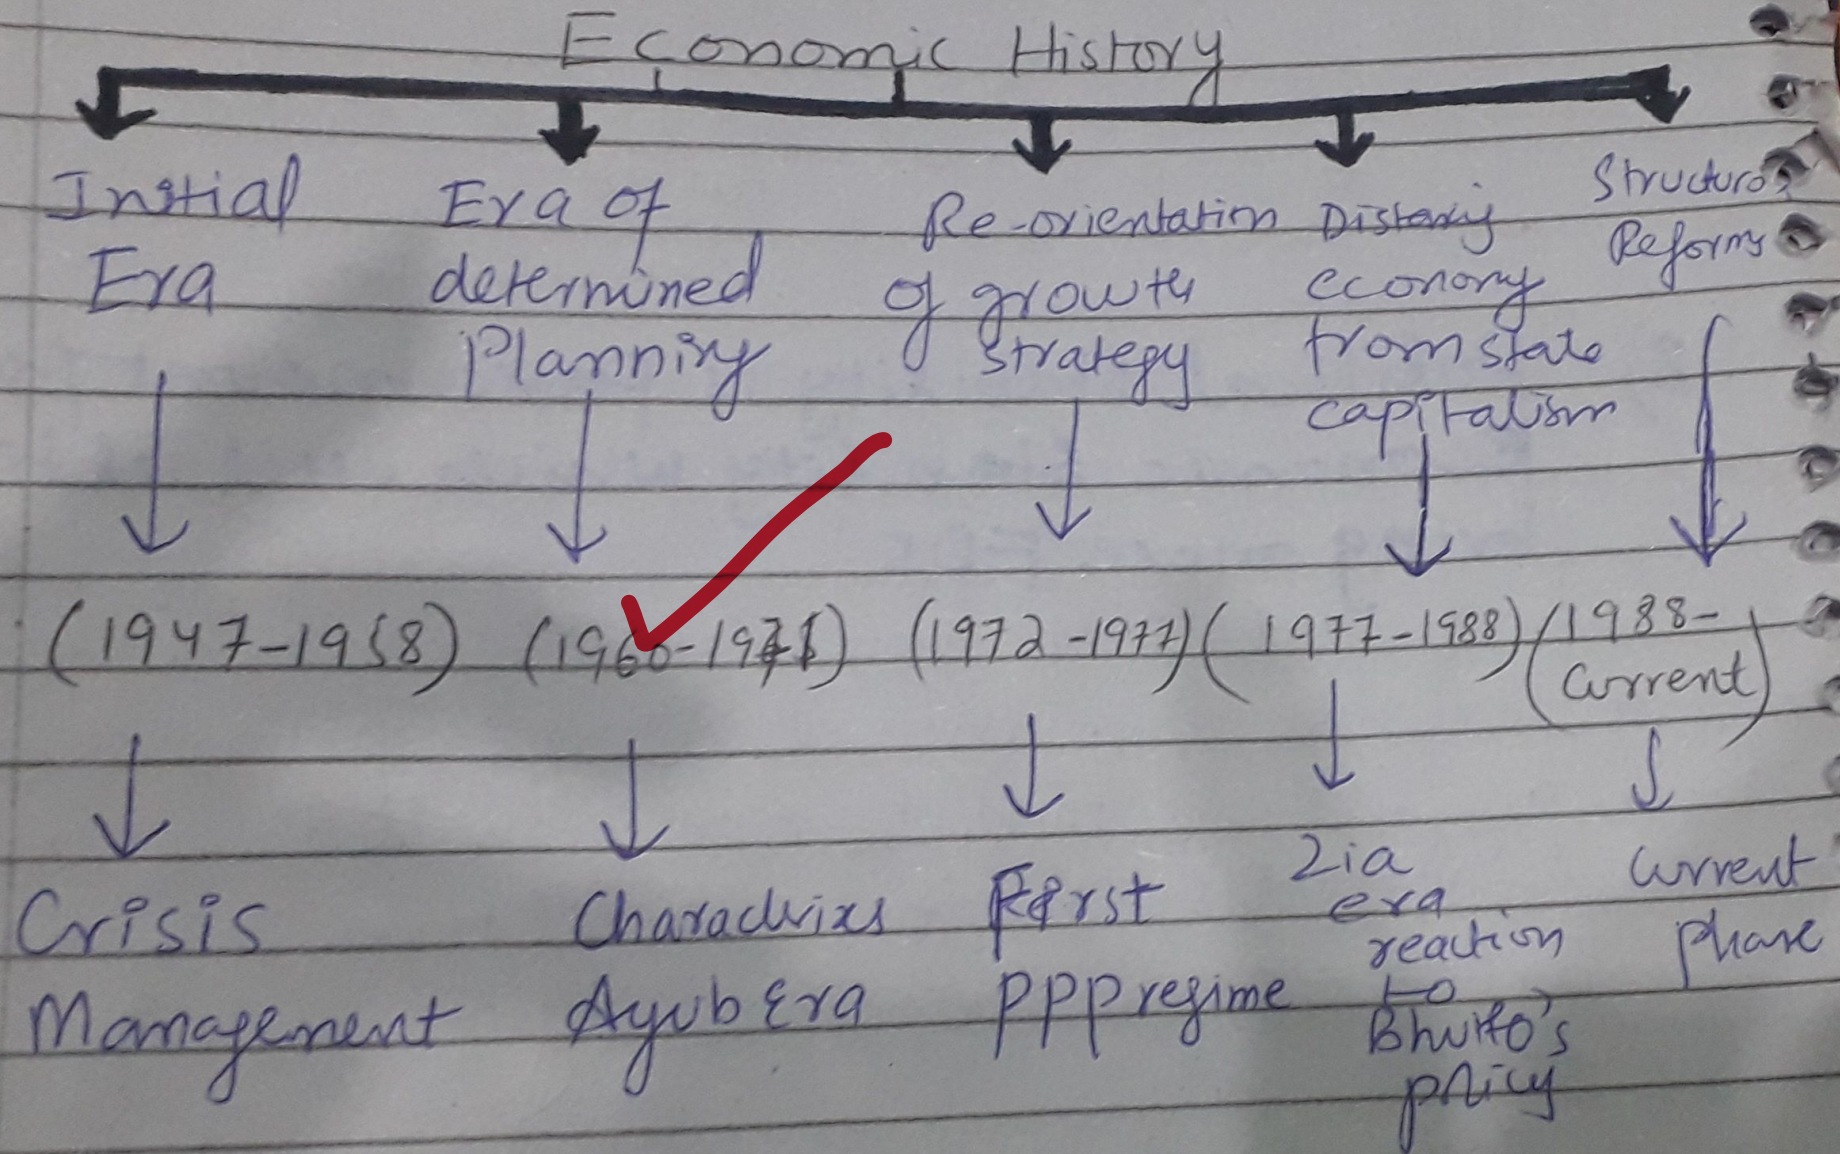 Economic History
Initial
Era
Era of
determined
Planning
Re-orientation
of growth
strategy
economy
from state
capitalism
Structural
Reforms
(1947-1958)
(1960-1971)
(1972-1977)
(1977-1988)
(1988-
Current)
Crisis
Management
Ayub Era
First
PPP regime
Zia
era
reaction
to
Bhutto's
policy
Current
phase